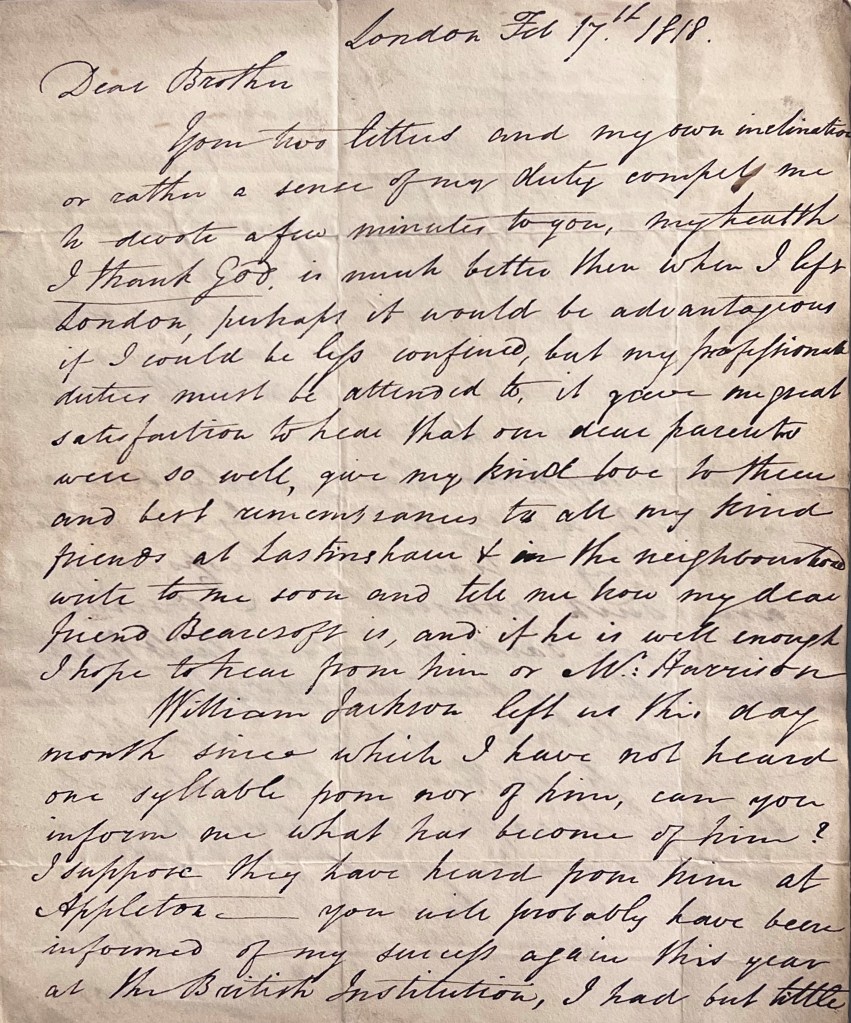 London Feb 17.th 1818.
Dear Brother
Your two letters and my own inclination
or rather a sense of my duty compels me
to devote a few minutes to you, my health
I thank God, is much better then when I left
London, perhaps it would be advantageous
if I could be less confined, but my professional
duties must be attended to, it gave me great
satisfaction to hear that our dear parents
were so well, give my kind love to them
and best remembrances to all my kind
friends at Lastingham & in the neighbourhood
write to me soon and tell me how my dear
friend Bearcroft is, and if he is well enough
I hope to hear from him or Mr: Harrison
William Jackson left us this day
month since which I have not heard
one syllable from nor of him, can you
inform me what has become of him?
I suppose they have heard from him at
Appleton — you will probably have been
informed of my success again this year
at the British Institution, I had but little